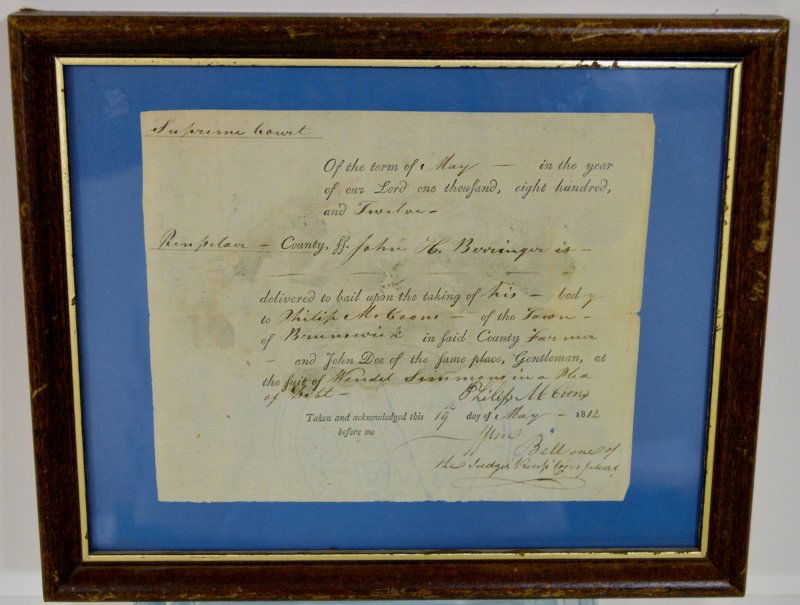 Supreme Court
Of the term of May — in the year
of our Lord one thousand, eight hundred,
and Twelve -
Rensselaer - County, ss. John H. Berringer is -
delivered to bail upon the taking of his - body
to Philip M. Coons - of the Town -
of Brunswick in said County Farmer
- and John Doe of the same place, Gentleman, at
the suit of Wendel Simmons in a Plea
of Debt - Philip M Coons
Taken and acknowledged this 19th day of May - 1812
before me
Bell one of
the Judges Rens Com pleas